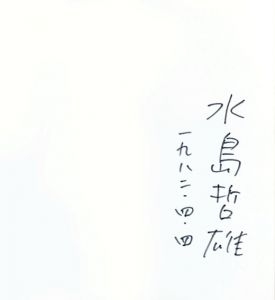 水島哲雄
一九八二・四・四